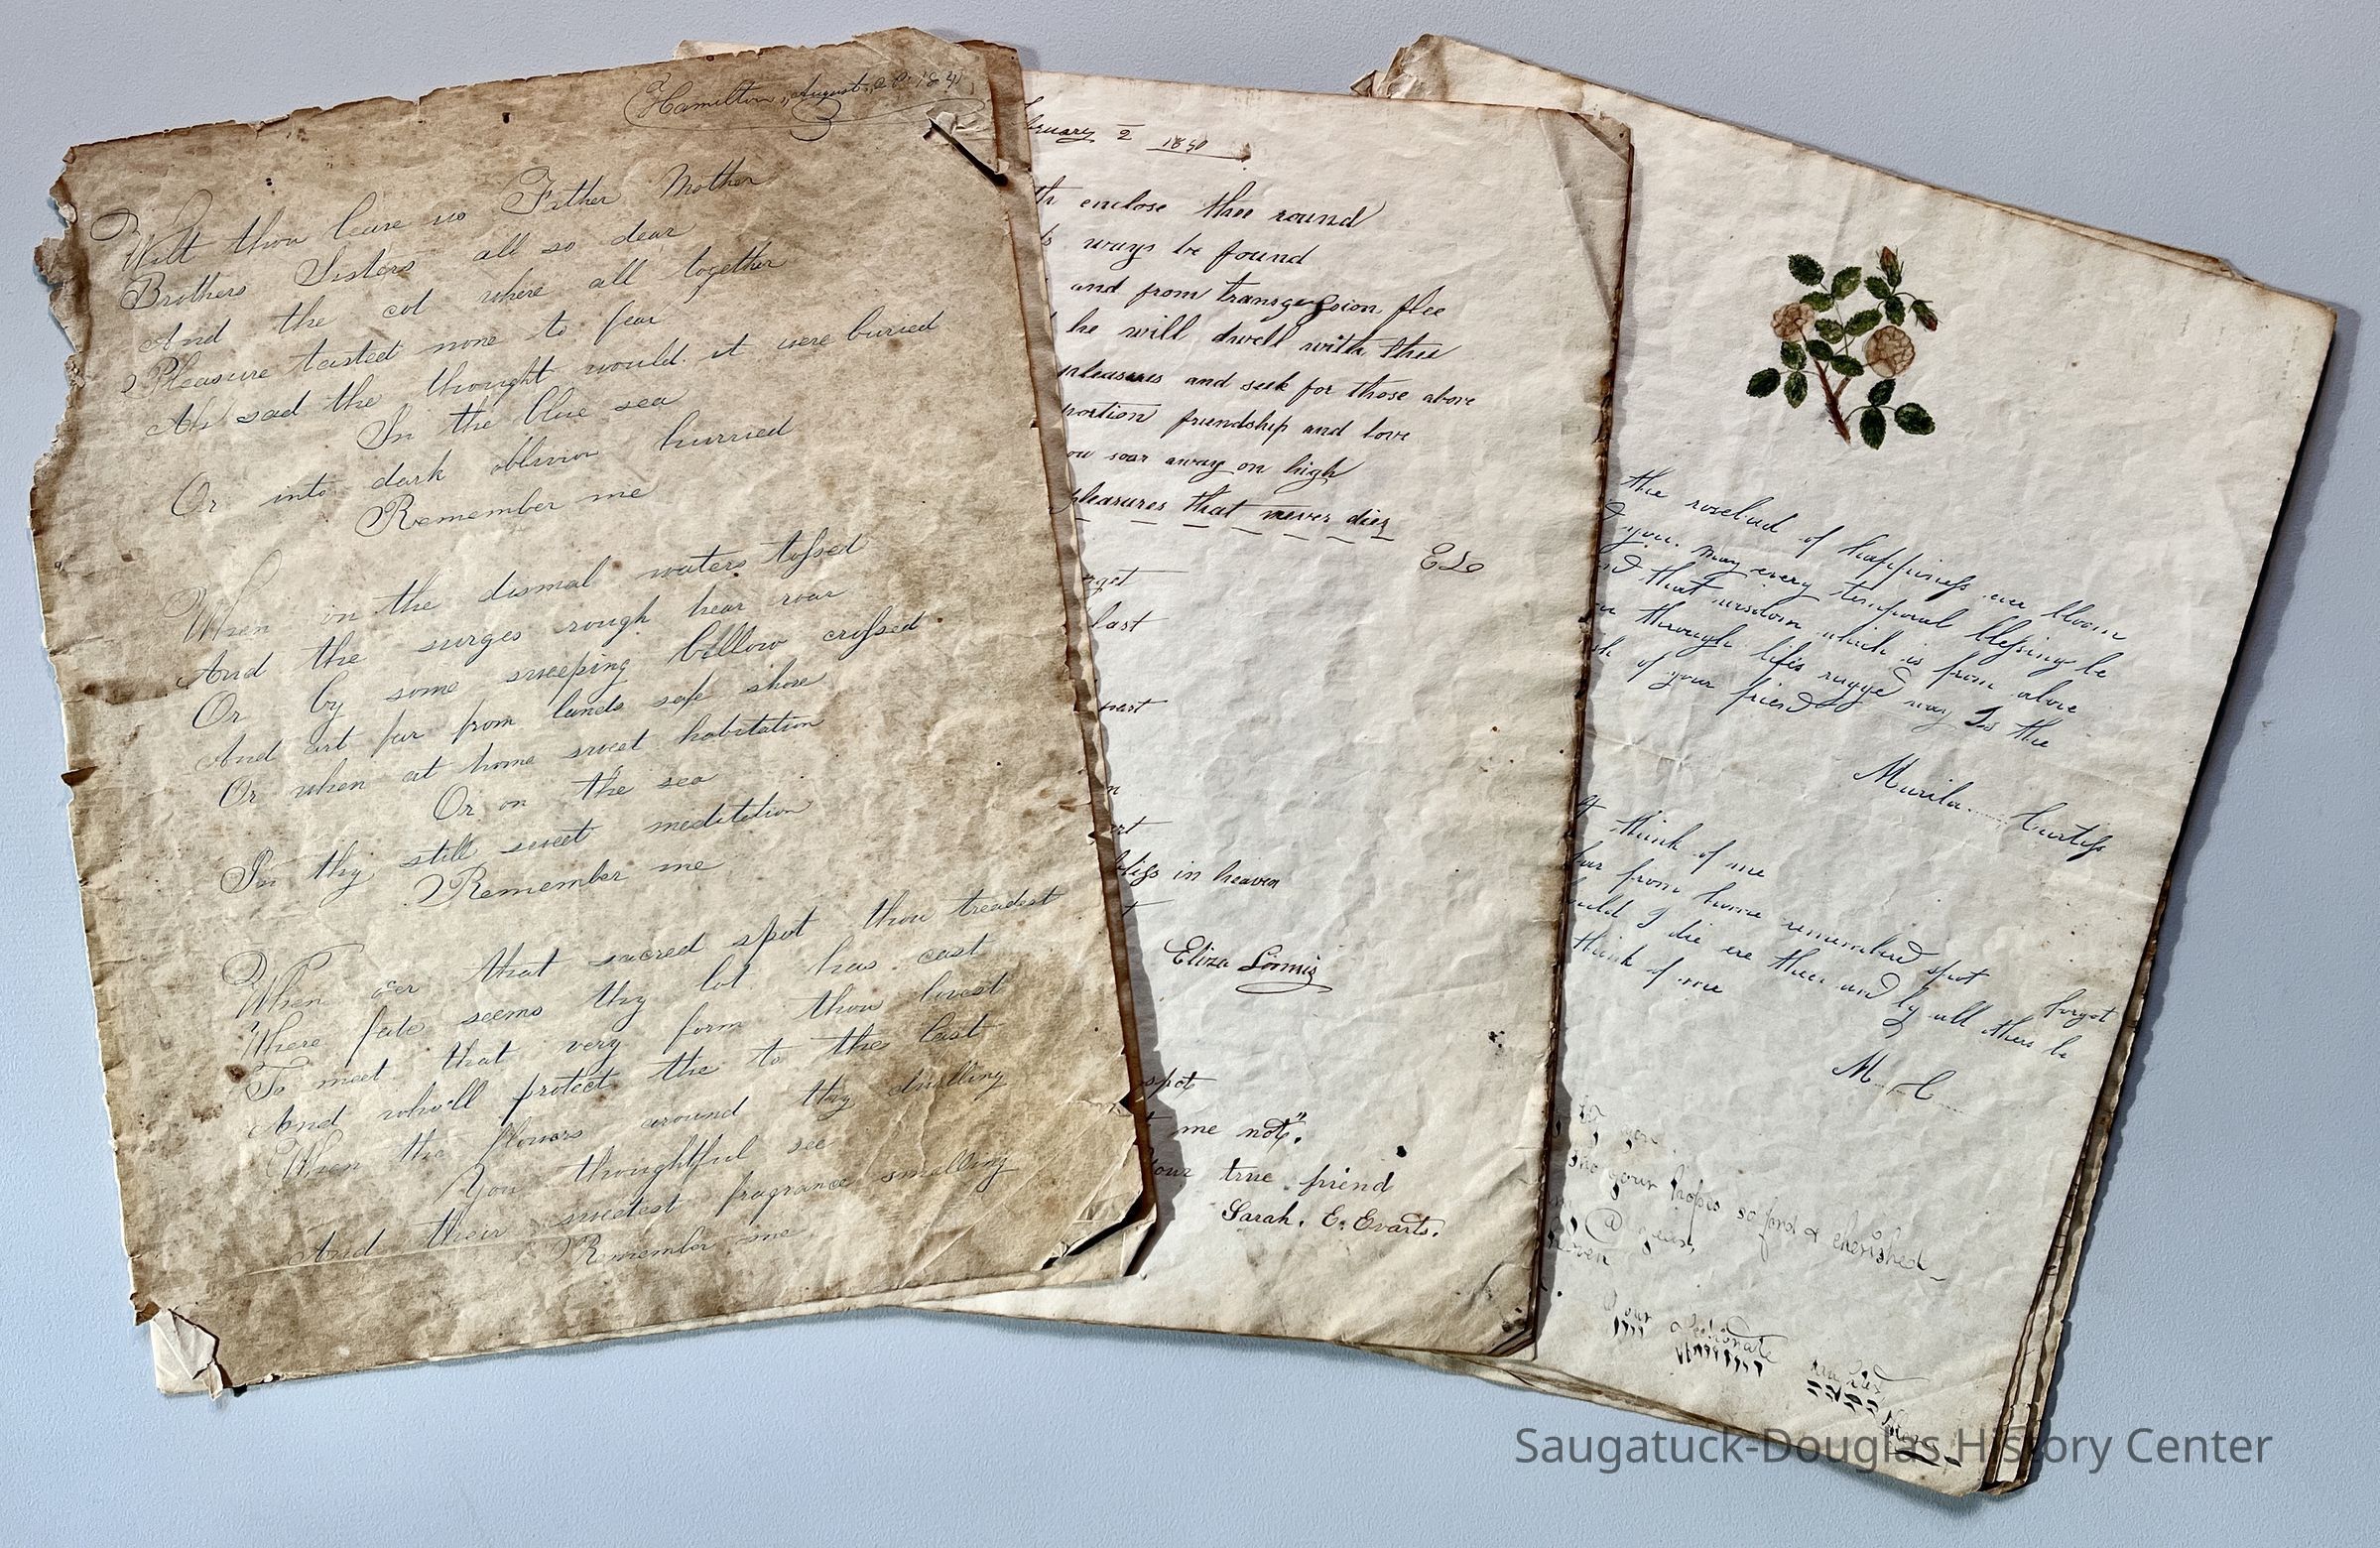 Hamilton, August,
Wilt thou leave us Father Mother
Brothers Sisters all so dear
And the cot where all together
Pleasure tasted none to fear
Ah sad the thought would it were buried
In the blue sea
Or into dark oblivion hurried
Remember me
When on the dismal waters tossed
And the surges rough hear roar
Or by some sweeping billow crossed
And art far from lands safe shore
Or when at home sweet habitation
Or on the sea
In thy still sweet meditation
Remember me
When o'er that sacred spot thou treadest
Where fate seems thy lot has cast
To meet that very form thou lovest
And who'll protect the to the last
When the flowers around thy dwelling
You thoughtful see
And their sweetest fragrance smelling
Remember me
bruary 2 1830
th enclose thee round
ways be found
and from transgession flee
he will dwell with thee
pleasures and seek for those above
portion friendship and love
ou soar away on high
pleasures that never dies
EL
rget
last
part
n
art
bliss in heaven
t
Eliza Lomis
spot
me not".
Your true friend
Sarah. E. Evarts.
the rosebud of happiness ever bloom
you. may every temporal blessing be
that wisdom which is from above
through lifes rugged way Is the
sh of your friend
Murila Curtiss
think of me
far from home remembered spot
ould I die ere then and by all others be forgot
think of me
M C
you.
your hopes so fond & cherished
years,
Your affectionate
Saugatuck-Douglas History Center